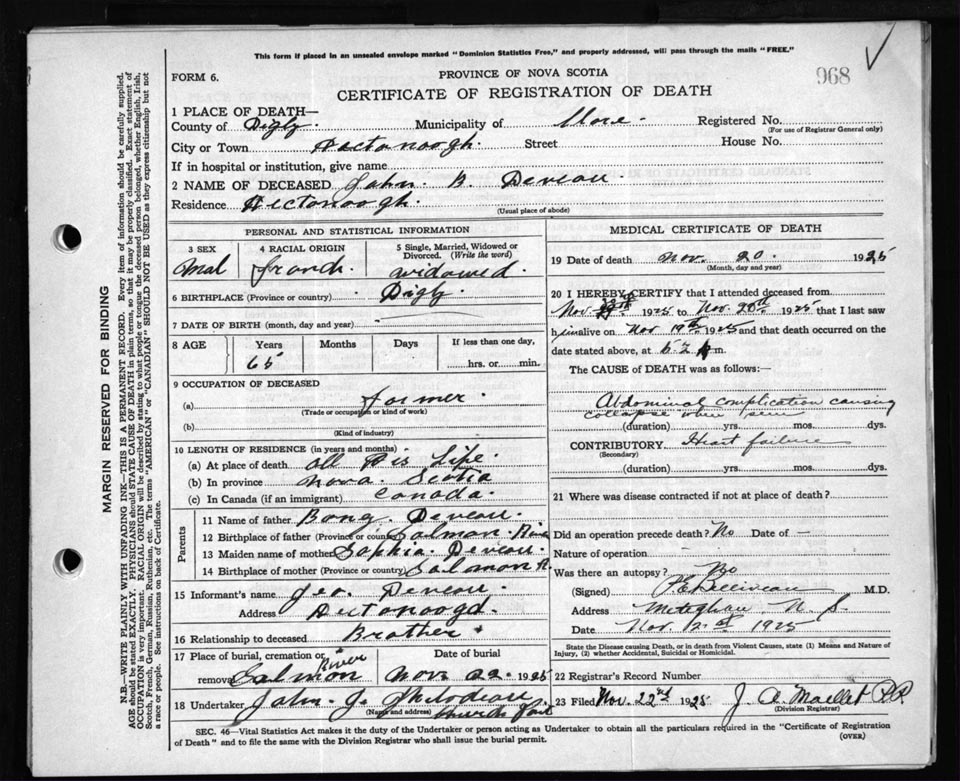 This form if placed in an unsealed envelope marked "Dominion Statistics Free," and properly addressed, will pass through the mails "FREE."
FORM 6.
PROVINCE OF NOVA SCOTIA
968
CERTIFICATE OF REGISTRATION OF DEATH
1 PLACE OF DEATH—
County of Digby. Municipality of Clare. Registered No.
(For use of Registrar General only)
City or Town Hectanoogh. Street House No.
If in hospital or institution, give name
2 NAME OF DECEASED John. B. Deveau
Residence Hectonoogh.
(Usual place of abode)
PERSONAL AND STATISTICAL INFORMATION
3 SEX 4 RACIAL ORIGIN 5 Single, Married, Widowed or Divorced. (Write the word)
Mal french. widowed.
6 BIRTHPLACE (Province or country) Digby.
7 DATE OF BIRTH (month, day and year)
8 AGE Years Months Days If less than one day,
65 hrs. or min.
9 OCCUPATION OF DECEASED
(a) farmer.
(Trade or occupation or kind of work)
(b)
(Kind of industry)
10 LENGTH OF RESIDENCE (in years and months)
(a) At place of death all his Life.
(b) In province Nova. Scotia
(c) In Canada (if an immigrant) Canada.
Parents
11 Name of father Deveau.
12 Birthplace of father (Province or country) Salmon River
13 Maiden name of mother Sophia. Deveau.
14 Birthplace of mother (Province or country) Salmon R.
15 Informant's name Geo. Deveau.
Address
16 Relationship to deceased Brother
17 Place of burial, cremation or removal Salmon River Date of burial Nov. 22. 1925
18 Undertaker John. J.
(Name and address) Church Point
MEDICAL CERTIFICATE OF DEATH
19 Date of death Nov. 20. 1925
(Month, day and year)
20 I HEREBY CERTIFY that I attended deceased from
Nov. 1925 to Nov. 20th 1925 that I last saw
him alive on Nov 19th 1925 and that death occurred on
date stated above, at m.
The CAUSE of DEATH was as follows:—
Abdominal complication causing
collapse when seen
(duration) yrs. mos. dys.
CONTRIBUTORY Heart failure
(Secondary)
(duration) yrs. mos. dys.
21 Where was disease contracted if not at place of death?
Did an operation precede death? No Date of —
Nature of operation —
Was there an autopsy? No
(Signed) M.D.
Address Meteghan, N. S.
Date Nov. 21st 1925
State the Disease causing Death, or in death from Violent Causes, state (1) Means and Nature of Injury, (2) whether Accidental, Suicidal or Homicidal.
22 Registrar's Record Number
23 Filed Nov. 22nd 1925 J. A. Maillet P.P.
(Division Registrar)
SEC. 46—Vital Statistics Act makes it the duty of the Undertaker or person acting as Undertaker to obtain all the particulars required in the "Certificate of Registration
of Death" and to file the same with the Division Registrar who shall issue the burial permit.
(OVER)
MARGIN RESERVED FOR BINDING
N.B.—WRITE PLAINLY WITH UNFADING INK—THIS IS A PERMANENT RECORD. Every item of information should be carefully supplied.
AGE should be stated EXACTLY. PHYSICIANS should STATE CAUSE OF DEATH in plain terms, so that it may be properly classified. Exact statement of
OCCUPATION is very important. RACIAL ORIGIN will be described by stating to what people or tongue the deceased person belonged, whether English, Irish,
Scotch, French, German, Russian, Ruthenian, etc. The terms "AMERICAN" or "CANADIAN" SHOULD NOT BE USED as they express citizenship but not
a race or people. See instructions on back of Certificate.